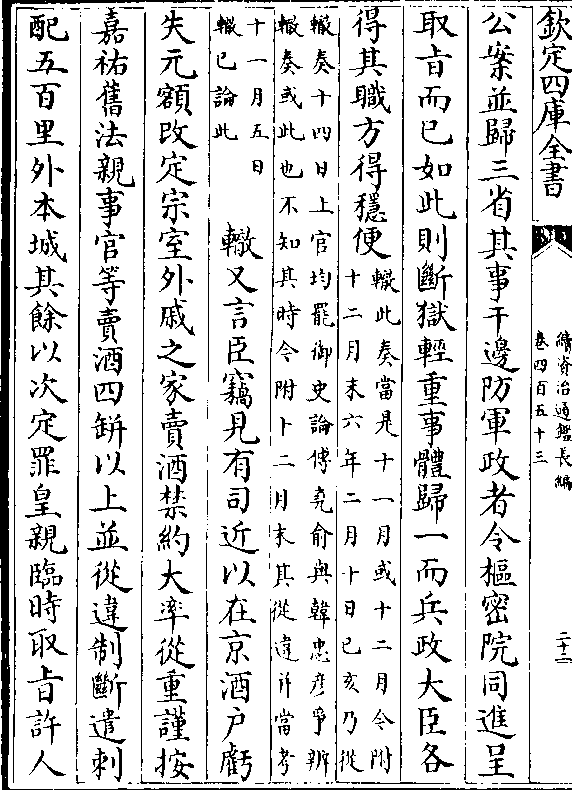 欽定四庫全書
續資治通鑑長編
卷四百五十三
二十二
公案並歸三省其事干邊防軍政者令樞密院同進呈
取旨而已如此則斷獄輕重事體歸一而兵政大臣各
得其職方得穩便
轍此奏當是十一月或十二月今附
十二月末六年二月十日已亥乃從
轍奏十四日上官均罷御史論傳堯俞與韓忠彥爭辨
轍奏或此也不知其時今附十二月末其從違許當考
十一月五日
轍已論此
轍又言臣竊見有司近以在京酒户虧
失元額改定宗室外戚之家賣酒禁約大率從重謹按
嘉祐舊法親事官等賣酒四缾以上並從違制斷遣刺
配五百里外本城其餘以次定罪皇親臨時取旨許人